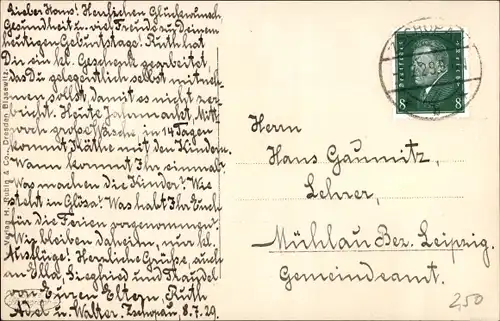 Lieber Hans! Herzlichen Glückwunsch,
Gesundheit u. viel Freude zu deinem
heutigen Geburtstage! Ruth hat
Dir ein kl. Geschenk gearbeitet,
das Du gelegentlich selbst mitneh-
men sollst, damit es nicht zer-
bricht. Heute Jahrmarkt. Mitt-
woch große Wäsche, in 14 Tagen
kommt Käthe mit den Kindern.
Wann kommt Ihr einmal?
Was machen die Kinder? Wie
steht in Glösa? Was habt Ihr Euch
für die Ferien vorgenommen?
Wir bleiben daheim, nur kl.
Ausflüge! Herzliche Grüße, auch
an Ella, Siegfried und Traudel
von Euren Eltern, Ruth
Adel u. Walter. Zschopau, 8.7.29.
Verlag H. Rubig & Co., Dresden-Blasewitz
Deutsches Reich
8 8
Herrn
Hans Gaumitz,
Lehrer,
Mühlau Bez. Leipzig.
Gemeindeamt.
2,50